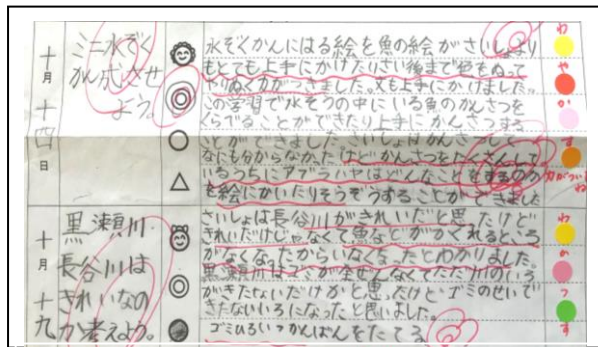 十月十四日
ミニ水ぞく
かん完成させ
よう。
水ぞくかんにはる絵を魚の絵がさいしょより
もとても上手にかけたりさい後まで色をぬって
やりぬく力がつきました。文も上手にかけました。
この学習で水そうの中にいる魚のかんさつを
くらべることができたり上手にかんさつする
ことができました。さいしょはかんさつして
なにも分からなかったけどかんさつをたくさんして
いるうちにアブラハヤはどんなことをするのか
を絵にかいたりそうぞうすることができました
わ
や
か
す
力がついたね
十月十九
黒瀬川
長谷川は
きれいなの
か考えよう。
さいしょは長谷川がきれいだと思ったけど
きれいだけじゃなくて魚などがかくれるところ
がなくなったからいなくなったとわかりました。
黒瀬川はゴミが全ぜんなくてただ川のいろ
がきたないだけかと思ったけど、ゴミのせいで
きたないいろになったと思いました。
ゴミひろいつかんばんをたてる
わ
か
つ
す